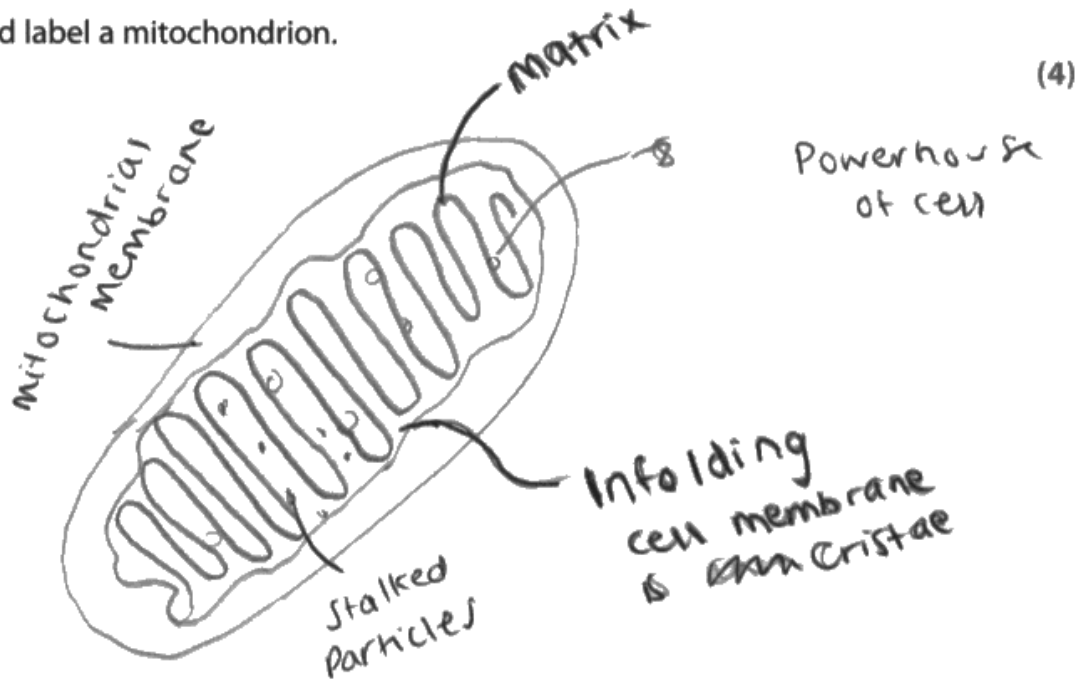 d label a mitochondrion.
(4)
matrix
mitochondrial
membrane
8
Powerhouse
of cell
Infolding
cell membrane
is cristae
stalked
particles